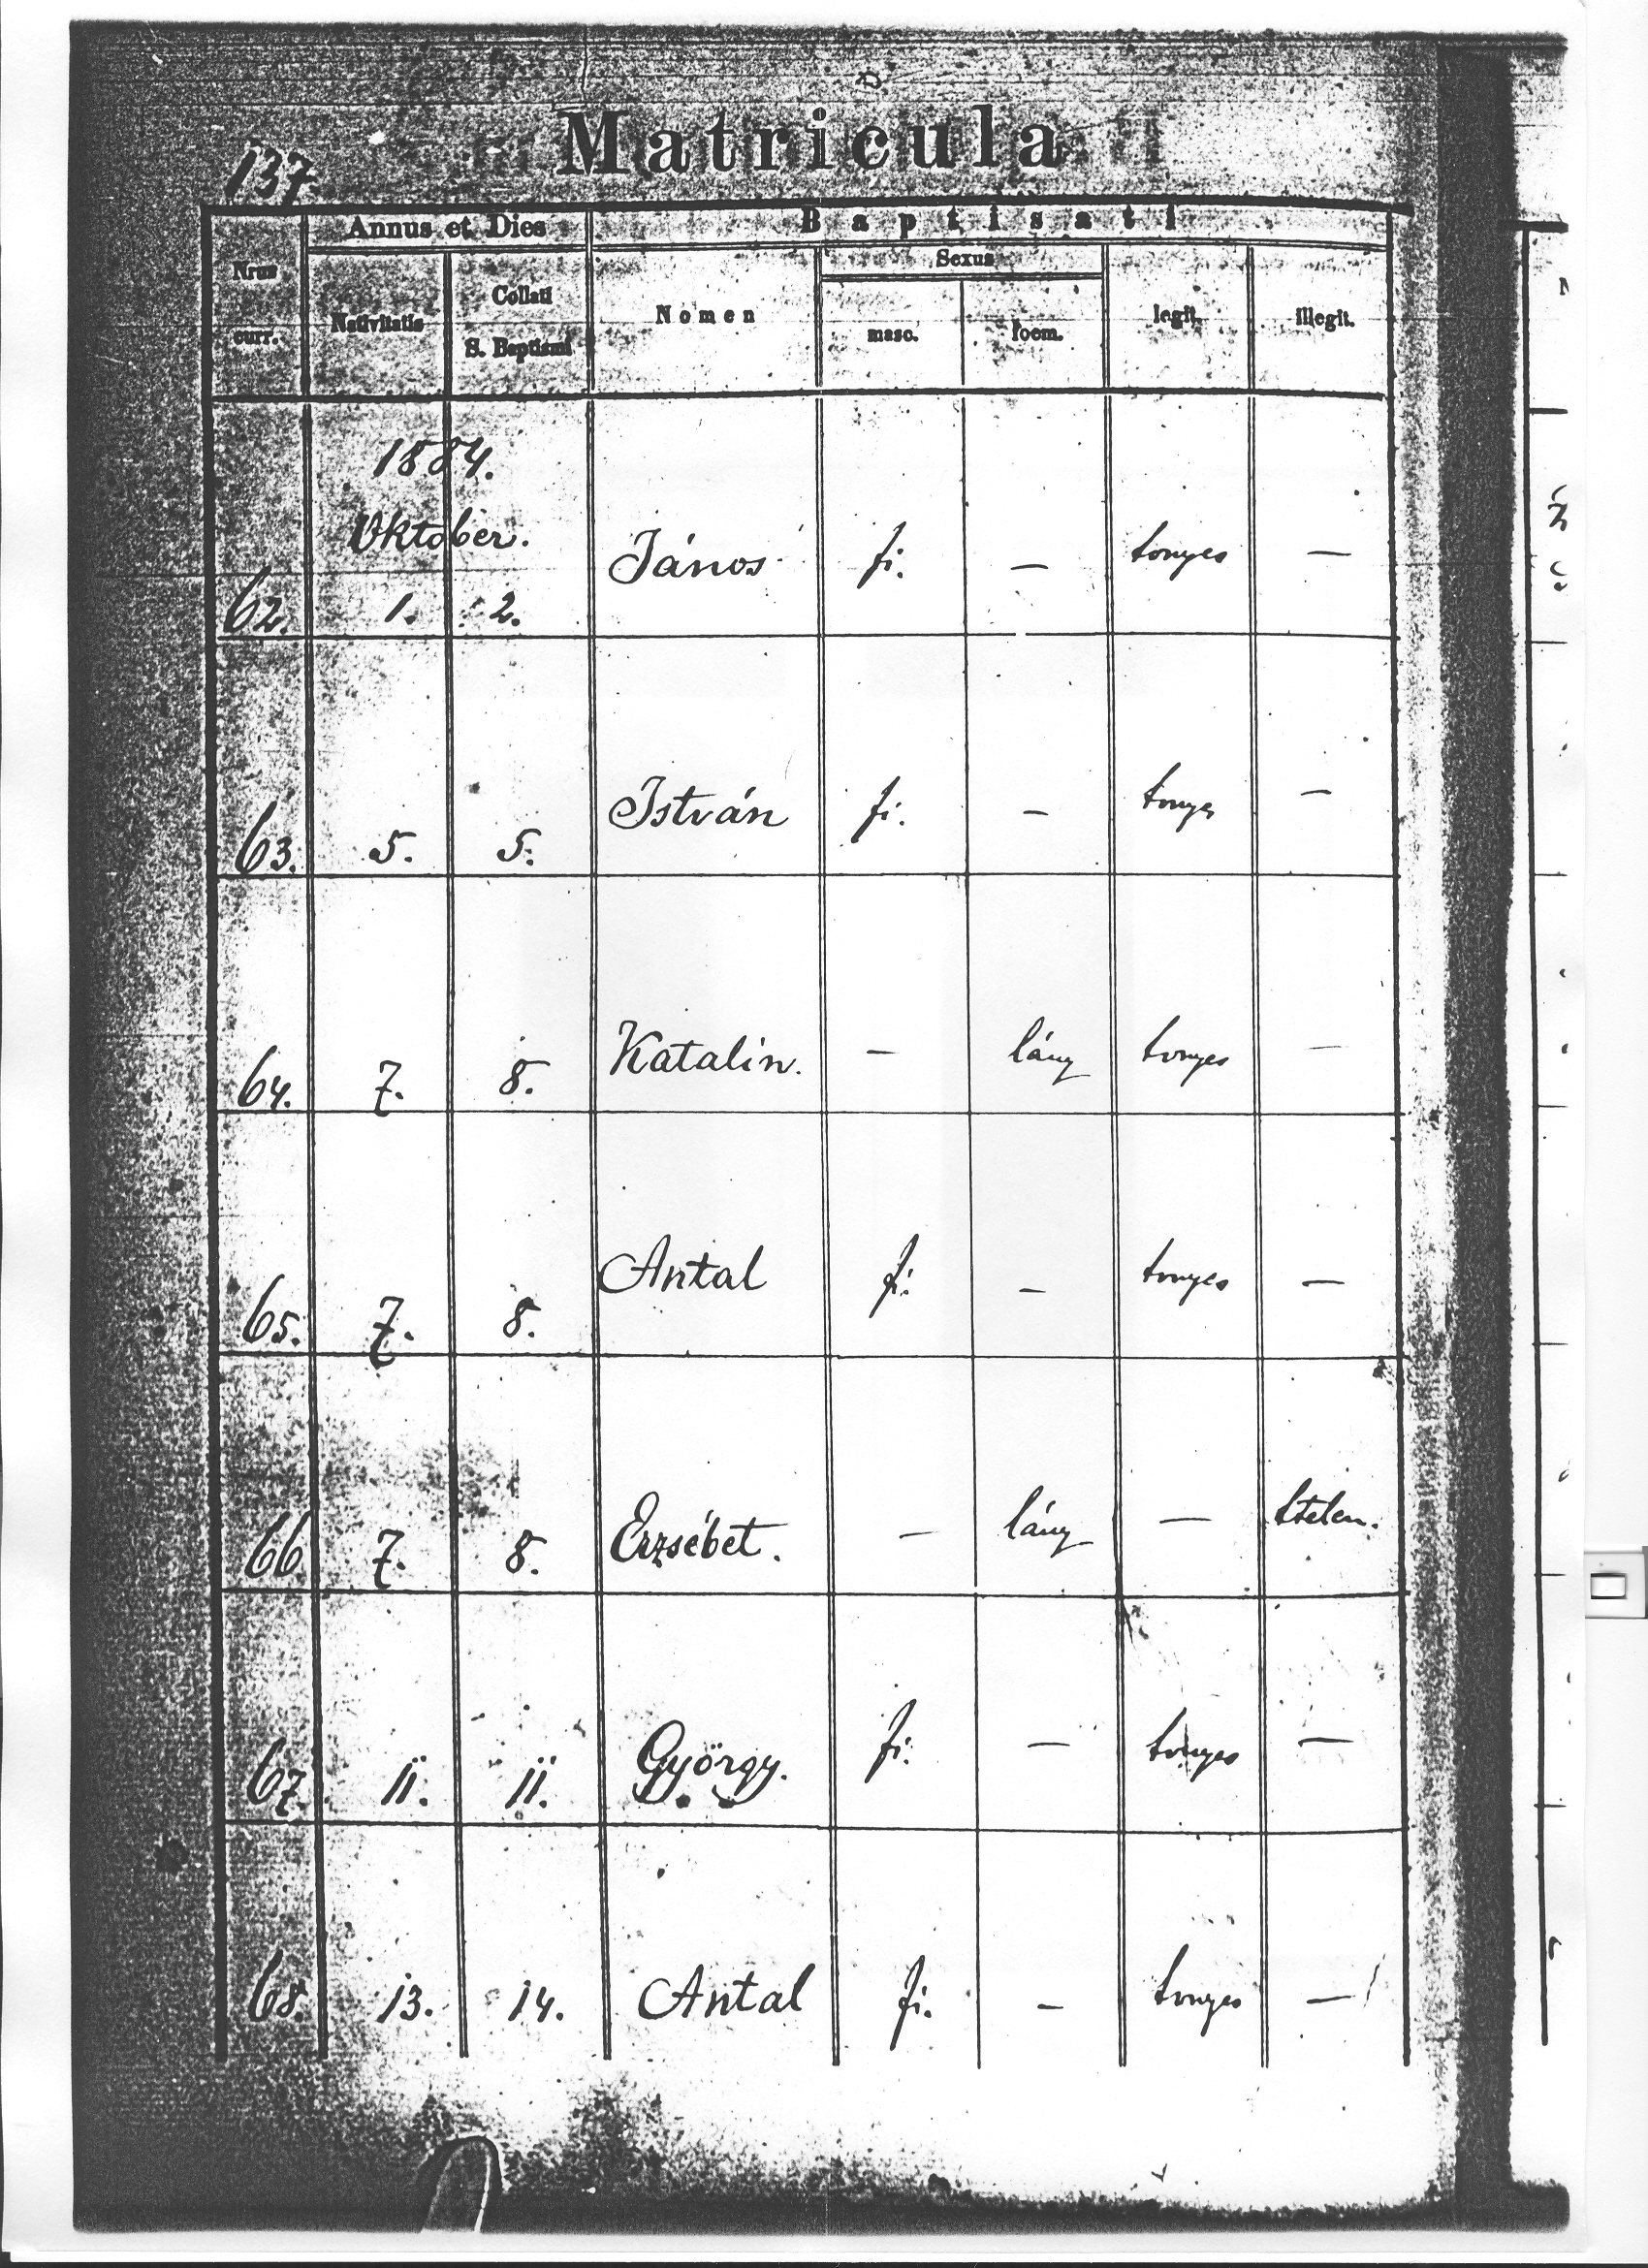 Matricula
137.
Annus et Dies
Baptisati
Nrus curr.
Nativitatis
Collati S. Baptismi
Nomen
Sexus
masc.
foem.
legit.
illegit.
1884.
Október.
62. 1. 2. János fi. — tvnyes —
63. 5. 5. István fi. — tvnyes —
64. 7. 8. Katalin. — lány tvnyes —
65. 7. 8. Antal fi. — tvnyes —
66. 7. 8. Erzsébet. — lány — ttelen.
67. 11. 11. György. fi. — tvnyes —
68. 13. 14. Antal fi. — tvnyes —